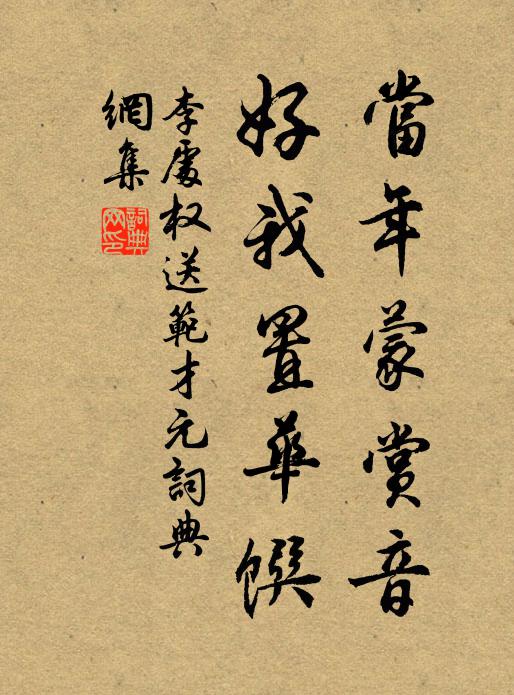 當年蒙賞音
好我置華饌
李處权送範才元詞典
網集
詞典網印